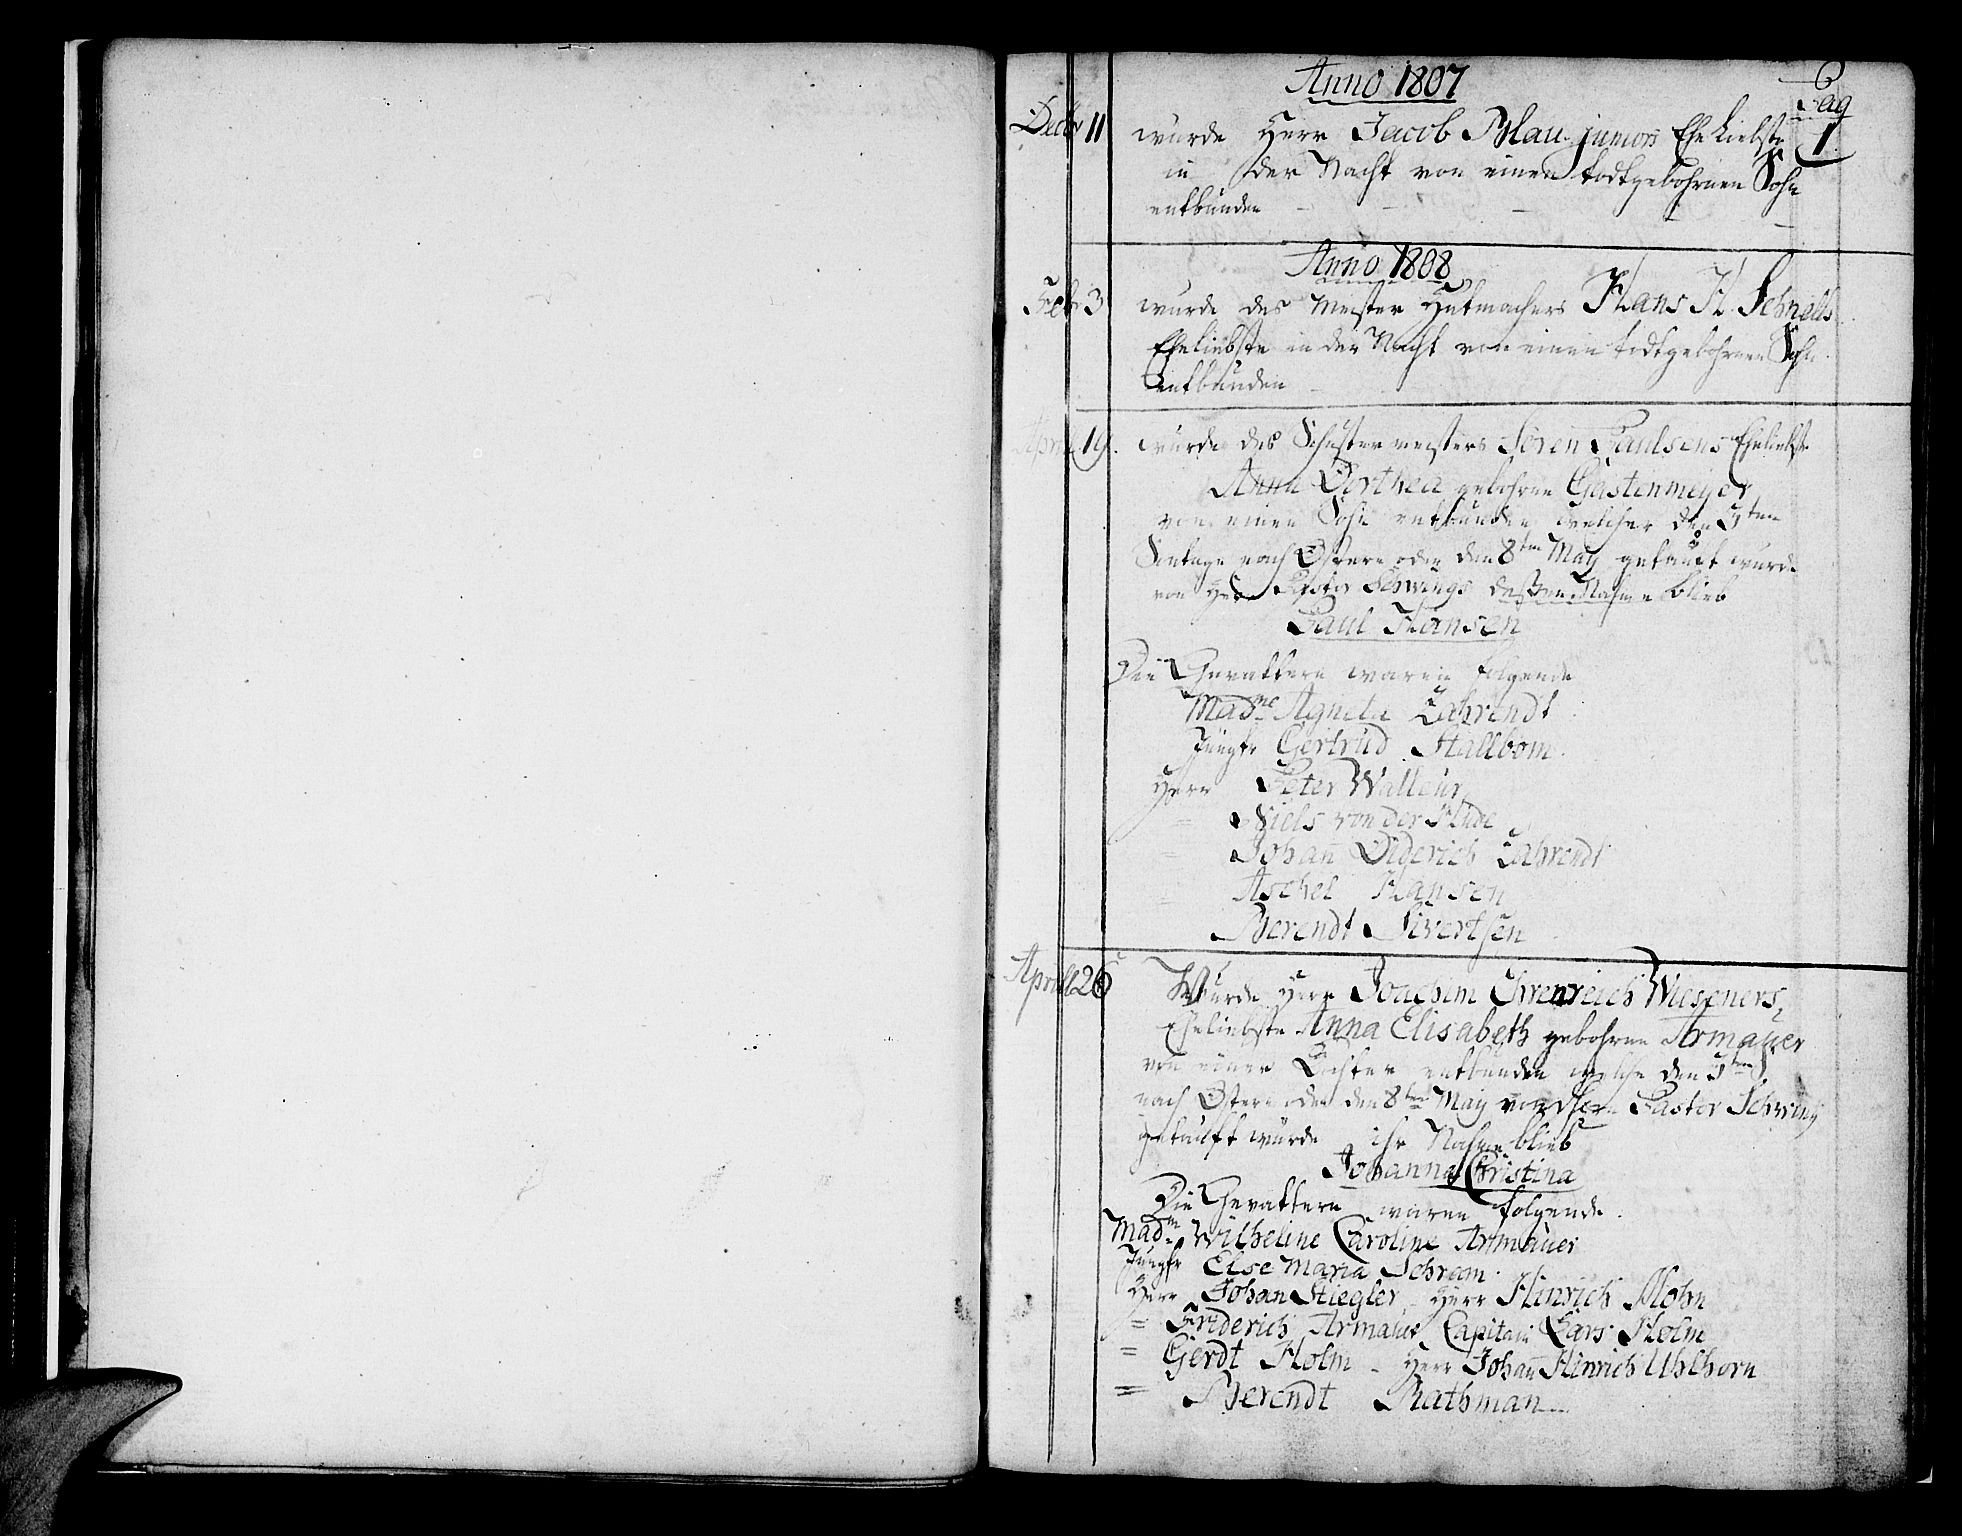 Anno 1807
6
Pag
1
Decbr 11 wurde Herr Jacob Blau juniors Ehe Liebste
in der Nacht von einen todtgebohrnen Sohn
entbunden
Anno 1808
Febr 3 wurde des Meister Hutmachers Hans H. Schnells
Eheliebste in der Nacht von einen todtgebohrnen Sohn
entbunden
April 19. wurde des Schustermeisters Sören Paulsens Eheliebste
Anna Dorthea gebohrne Gastenmeyer
von einen Sohn entbunden welcher den 3ten
Sontage nach Ostern oder den 8ten May getauft wurde
von Herr Pastor Schwings deßen Nahme blieb
Paul Hansen
Die Gevattern waren folgende
Madme Agneta Zahrendt
Jungfr Gertrud Hallbom.
Herr Peter Walleur
= Niels von der Hude
= Johan̄ Diderich Zahrendt
= Aschel Hansen
Berendt Sivertsen
Aprill 26 Wurde Herr Joachim Ehrenreich Wieseners
Eheliebste Anna Elisabeth gebohrne Armauer
von einer Tochter entbunden welche den 3ten S
nach Ostern oder den 8ten May von Herr Pastor Schwing
getauft wurde ihr Nahme blieb
Johanna Christina
Die Gevattern waren folgende.
Madm Wilheline Caroline Armauer
Jungfr Else Maria Schram.
Herr Johan Stiegler, Herr Hinrich Mohn
= Friderich Armauer Capitain Lars Holm
= Gerdt Holm - Herr Johan̄ Hinrich Uhlhorn
= Berendt Rathman